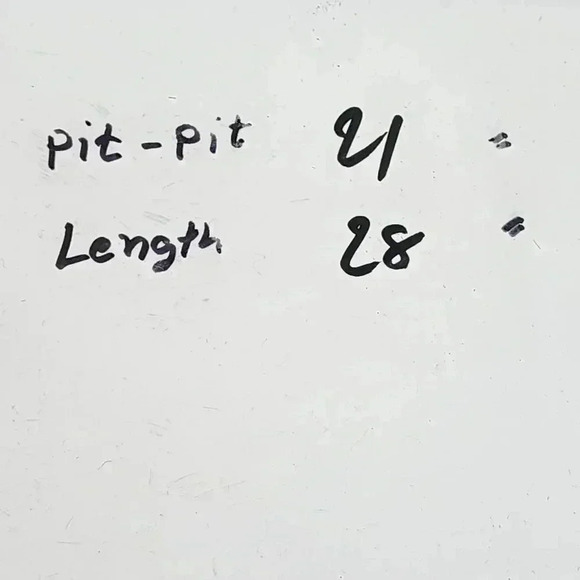 pit-pit 21 "
Length 28 "